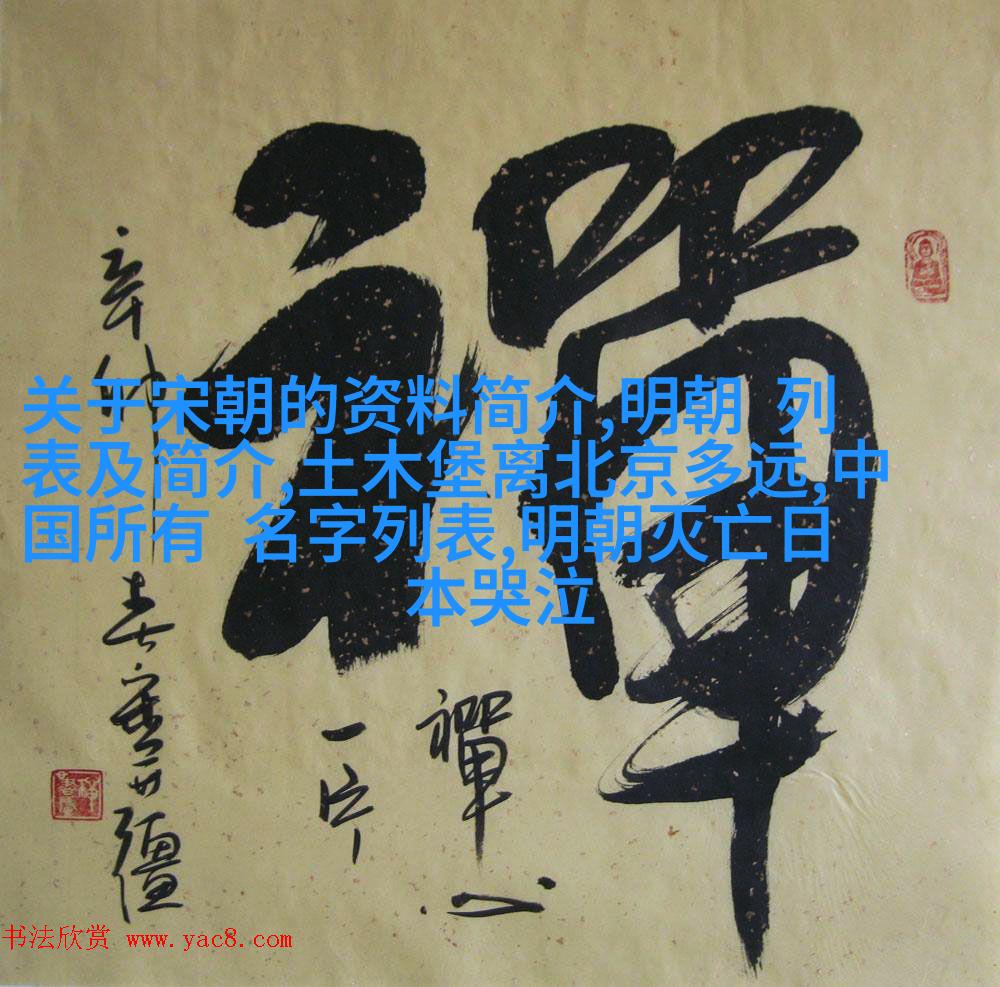 禪
禪心
一片
关于宋朝的资料简介,明朝 列
表及简介,土木堡离北京多远,中
国所有 名字列表,明朝灭亡日
本哭泣
书法欣赏 www.yac8.com